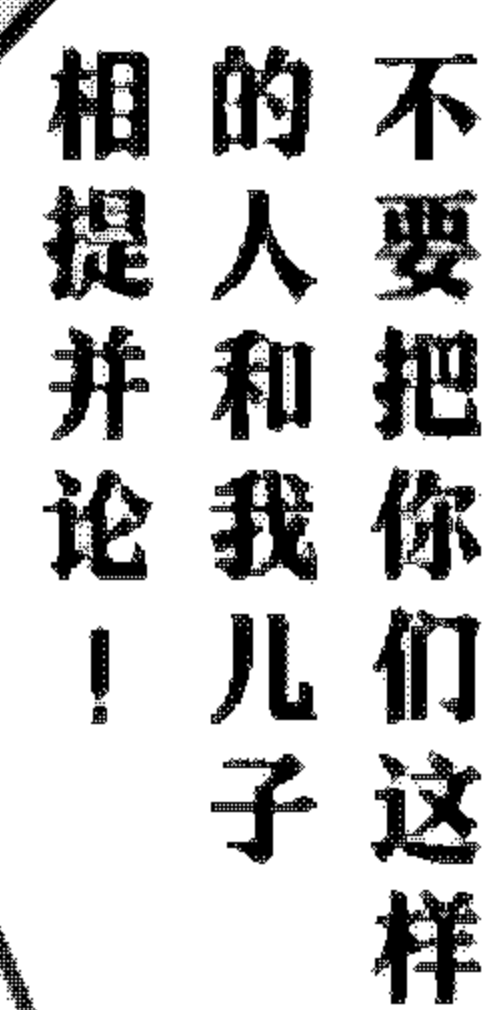 不要把你们这样
的人和我儿子
相提并论！